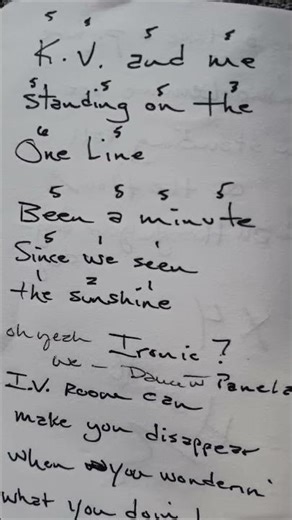 5 5 5 5
K.V. and me
5 5 5 3
standing on the
6 5
One Line
5 5 5 5
Been a minute
5 1 1
Since we seen
1 2 1
the sunshine
oh yeah Ironic ?
we -
I.V. Room can
make you disappear
when you wonderin'
what you doin'